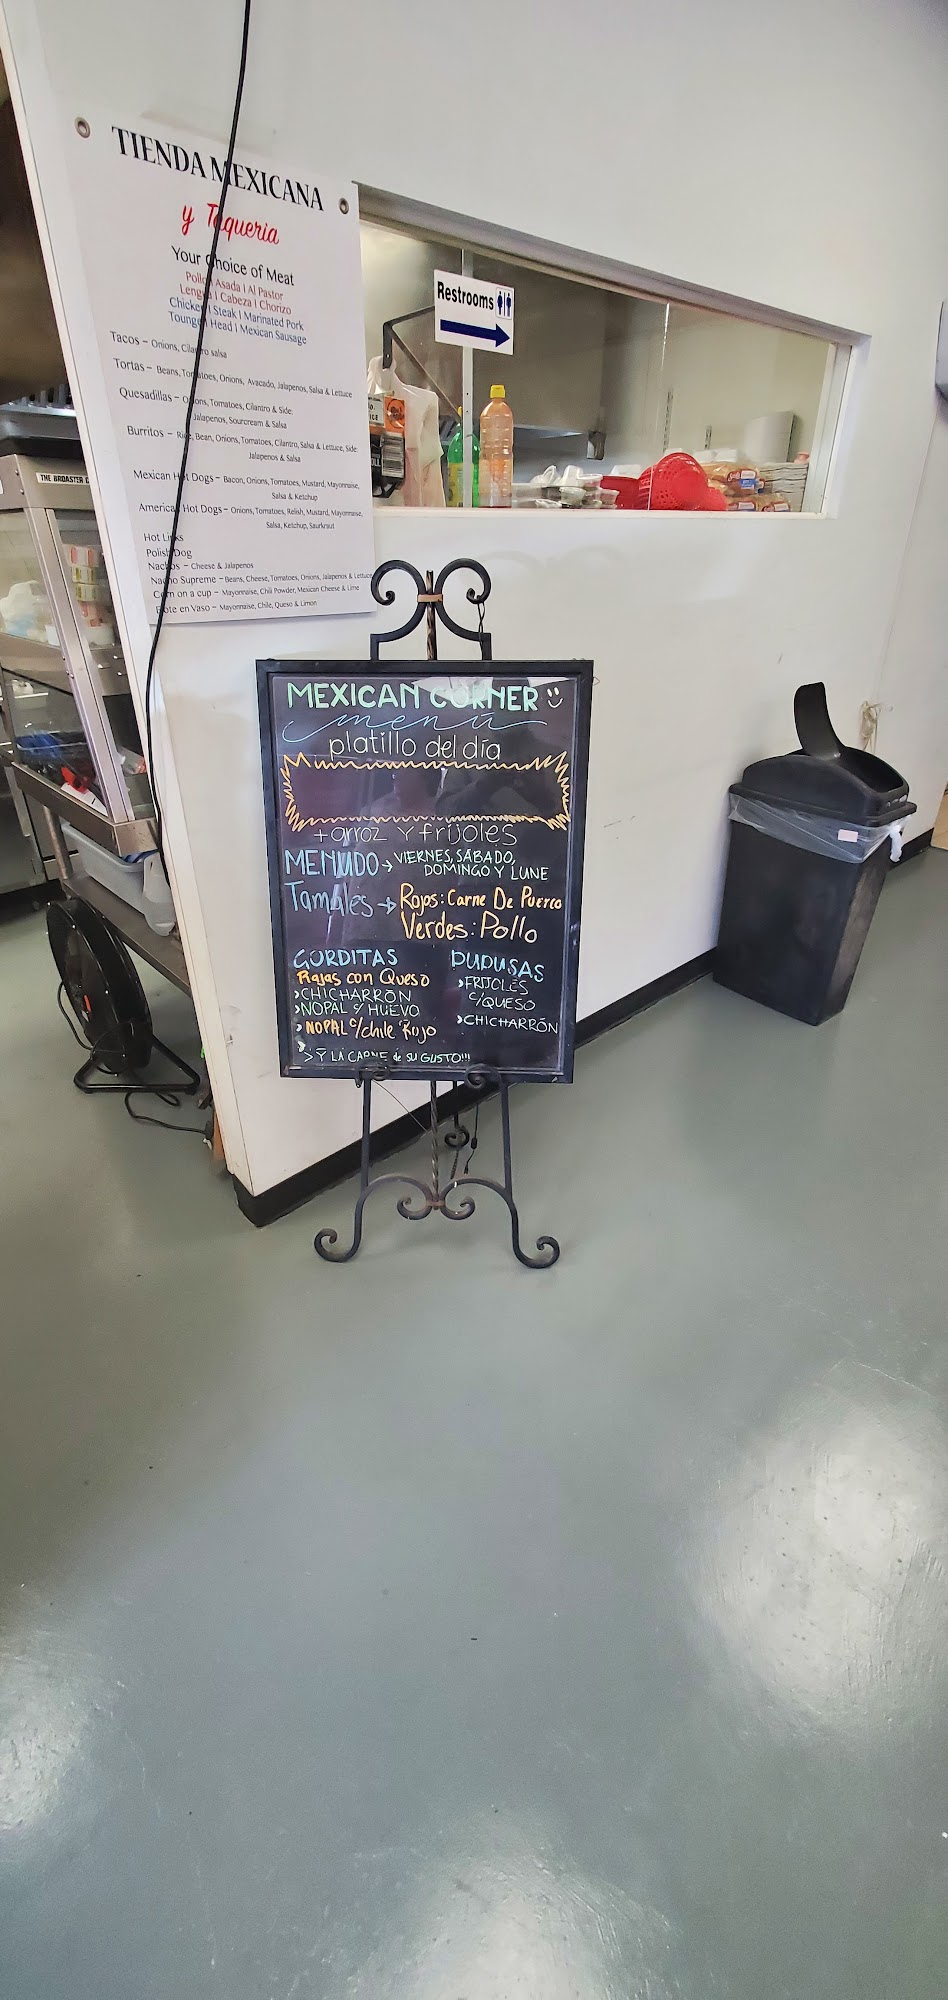 TIENDA MEXICANA
y Taqueria
Your Choice of Meat
Pollo | Asada | Al Pastor
Lengua | Cabeza | Chorizo
Chicken | Steak | Marinated Pork
Tounge | Head | Mexican Sausage
Tacos - Onions, Cilantro salsa
Tortas - Beans, Tomatoes, Onions, Avacado, Jalapenos, Salsa & Lettuce
Quesadillas - Onions, Tomatoes, Cilantro & Side:
Jalapenos, Sourcream & Salsa
Burritos - Rice, Bean, Onions, Tomatoes, Cilantro, Salsa & Lettuce, Side:
Jalapenos & Salsa
Mexican Hot Dogs - Bacon, Onions, Tomatoes, Mustard, Mayonnaise,
Salsa & Ketchup
American Hot Dogs - Onions, Tomatoes, Relish, Mustard, Mayonnaise,
Salsa, Ketchup, Saurkraut
Hot Links
Polish Dog
Nachos - Cheese & Jalapenos
Nacho Supreme - Beans, Cheese, Tomatoes, Onions, Jalapenos & Lettuce
Corn on a cup - Mayonnaise, Chili Powder, Mexican Cheese & Lime
Elote en Vaso - Mayonnaise, Chile, Queso & Limon
Restrooms
THE BROASTER
MEXICAN CORNER
menú
platillo del día
+ arroz y frijoles
MENUDO → VIERNES, SÁBADO,
DOMINGO Y LUNE
Tamales → Rojos: Carne De Puerco
Verdes: Pollo
GORDITAS
Rajas con Queso
> CHICHARRÓN
> NOPAL c/ HUEVO
> NOPAL c/chile Rojo
> Y LA CARNE de SU GUSTO!!!
PUPUSAS
> FRIJOLES
c/QUESO
> CHICHARRÓN